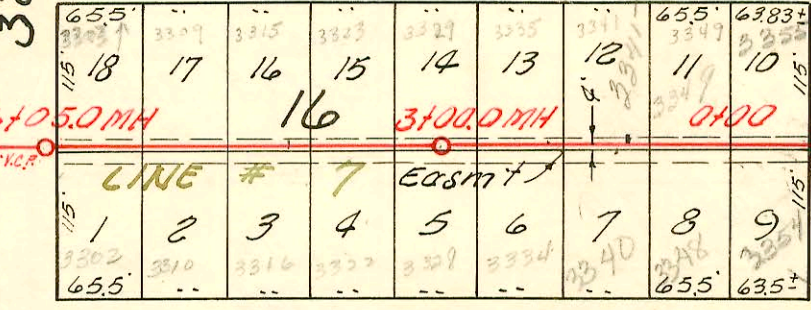 65.5' .. .. .. .. .. .. 65.5' 63.83±
3309 3315 3323 3329 3335 3341 3349
115' 18 17 16 15 14 13 12 11 10 115'
3341 3349
16
5.0 MH 3+00.0 MH 0+00
V.C.P.
LINE # 7 Easm't
115' 1 2 3 4 5 6 7 8 9 115'
3302 3310 3316 3322 3328 3334 3340 3348 3354
65.5' .. .. .. .. .. .. 65.5' 63.5±